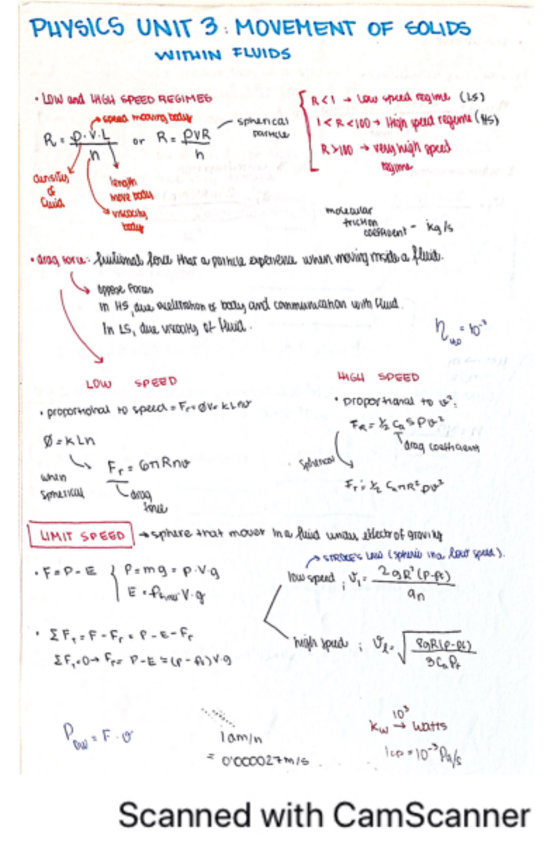 PHYSICS UNIT 3: MOVEMENT OF SOLIDS
WITHIN FLUIDS
• LOW and HIGH SPEED REGIMES
speed moving body
R = ρ·V·L / η or R = ρVR / η
spherical particle
density of fluid
length move body
viscosity body
R<1 → Low speed regime (LS)
1<R<100 → High speed regime (HS)
R>100 → very high speed regime
molecular friction coefficient - kg/s
• drag force: frictional force that a particle experience when moving inside a fluid.
oppose forces
in HS, due aceleration of body and communication with fluid.
In LS, due viscosity of fluid.
η H₂O = 10⁻³
LOW SPEED
• proportional to speed = Fr = Øv = kLηv
Ø = kLη
when spherical
Fr = 6πRηv
drag force
HIGH SPEED
• proportional to v²:
FR = ½ Ca S ρv²
drag coefficient
spherical
Fr = ½ CaπR²ρv²
LIMIT SPEED → sphere that mover in a fluid under effects of graving
• F = P - E { P = mg = ρ·V·g
E = ρ fluid·V·g
→ STOKE'S LAW (spheric in a low speed).
low speed ; v₁ = 2gR²(ρ-ρf) / 9η
• ΣF₁ = F - Fr = P - E - Fr
ΣF₁ = 0 → Fr = P - E = (ρ - ρf)V·g
high speed ; vℓ = √ 8gR(ρ-ρf) / 3Caρf
Pow = F·v
1am/n
= 0'000027m/s
kw 10³→ watts
1cp = 10⁻³Pa/s
Scanned with CamScanner